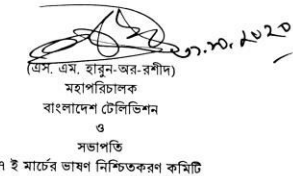 ০৭.১০.২০২০
(এস. এম. হারুন-অর-রশীদ)
মহাপরিচালক
বাংলাদেশ টেলিভিশন
ও
সভাপতি
৭ ই মার্চের ভাষণ নিশ্চিতকরণ কমিটি